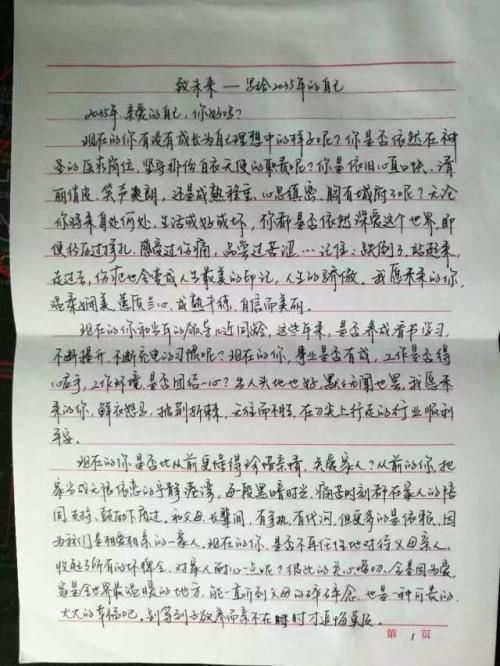 致未来——写给2035年的自己
2035年,亲爱的自己,你好吗?
现在的你有没有成长为自己理想中的样子呢?你是否依然在神
圣的医务岗位,坚守那份白衣天使的职责呢?你是依旧心直口快、清
丽俏皮、笑声爽朗,还是成熟稳重、心思缜密、胸有城府了呢?无论
你将来身处何处,生活或好或坏,你都是否依然深爱这个世界,即
便经历过挣扎、感受过伤痛,品尝过苦涩…记住:跌倒了,站起来,
在过去,伤疤也会变成人生最美的印记,人生的骄傲。我愿未来的你,
温柔娴美、蕙质兰心、成熟干练、自信而美丽。
现在的你和当年的领导几近同龄,这些年来,是否养成看书学习、
不断提升、不断充电的习惯呢?现在的你,事业是否有成,工作是否得
心应手,工作环境是否团结一心?出人头地也好,默默无闻也罢,我愿未
来的你,鲜衣怒马,披荆斩棘,无往而不胜,在刀尖上行走的行业顺利
平安。
现在的你是否比从前更懂得珍惜亲情、关爱家人?从前的你,把
家当成无限依恋的宁静港湾,每段黑暗时光、痛苦时刻都在家人的陪同、
支持、鼓励下度过。和父母、长辈间,有争执,有代沟,但更多的是依赖,因
为我们是相亲相爱的一家人。现在的你,是否不再任性地对待父母亲人,
收起了所有的坏脾气,对家人耐心一点呢?彼此的关心嘱咐,全是因为爱,
家是全世界最温暖的地方,能一直听到父母的碎碎念,也是一种可贵的、
大大的幸福吧,别等到子欲养而亲不在时才追悔莫及。
第 1 页